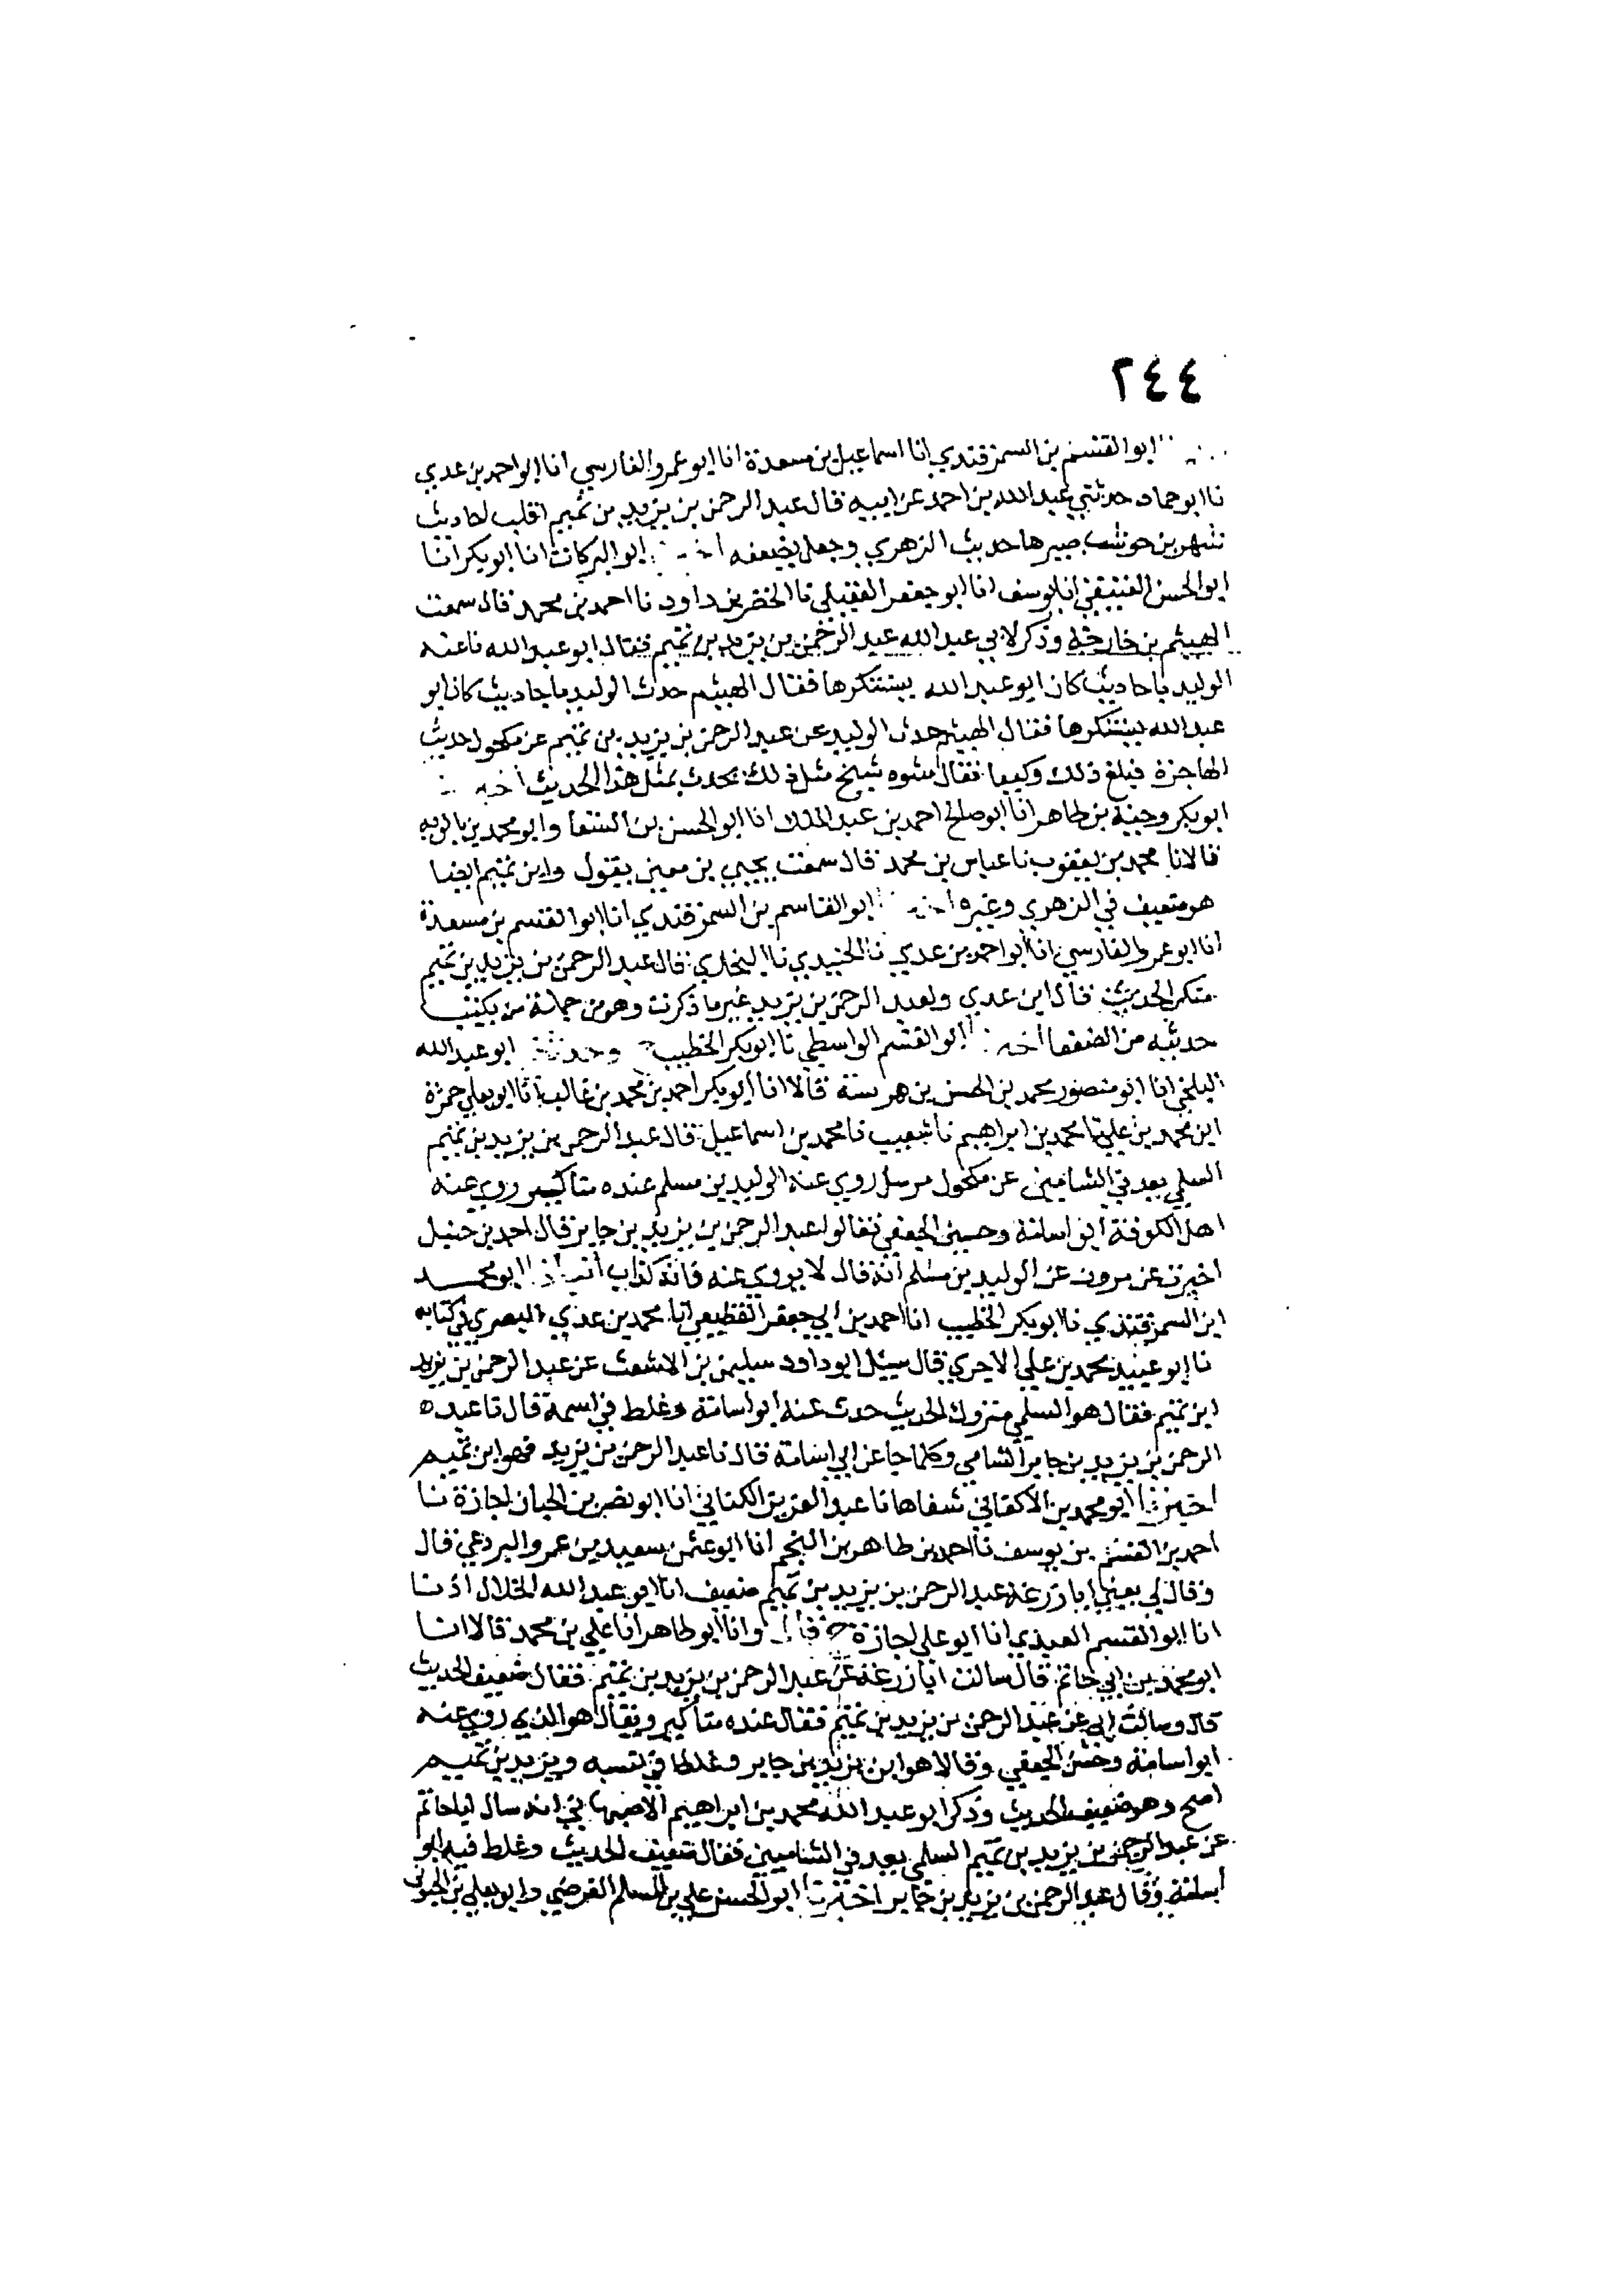 ٢٤٤
ابو القسم بن السمرقندي انا اسماعيل بن مسعدة انا ابو عمرو الفارسي انا ابو احمد بن عدي
نا ابو حماد حدثني عبد الله بن احمد عن ابيه قال عبد الرحمن بن يزيد بن تميم اقلب احاديث
شهر بن حوشب صيرها حديث الزهري وجعل يضعفه ابو البركات انا ابو بكر انا
ابو الحسن العتيقي انا يوسف انا ابو جعفر العقيلي نا الخضر بن داود نا احمد بن محمد قال سمعت
الهيثم بن خارجة وذكر لابي عبد الله عبد الرحمن بن يزيد بن تميم فقال ابو عبد الله نا عنه
الوليد باحاديث كان ابو عبد الله يستنكرها فقال الهيثم حدث الوليد باحاديث كان ابو
عبد الله يستنكرها فقال الهيثم حدث الوليد عن عبد الرحمن بن يزيد بن تميم عن مكحول حديث
الهاجرة فبلغ ذلك وكيعا فقال مشوه شيخ مثل ذلك يحدث بمثل هذا الحديث
ابو بكر وجيه بن طاهر انا ابو صالح احمد بن عبد الملك انا ابو الحسن بن السقا وابو محمد بن بالويه
قالا نا محمد بن يعقوب نا عباس بن محمد قال سمعت يحيى بن معين يقول وابن تميم ايضا
هو ضعيف في الزهري وغيره ابو القاسم بن السمرقندي انا ابو القسم بن مسعدة
انا ابو عمرو الفارسي انا ابو احمد بن عدي نا الجنيدي نا البخاري قال عبد الرحمن بن يزيد بن تميم
منكر الحديث قال ابن عدي ولعبد الرحمن بن يزيد غير ما ذكرت وهو من جملة من يكتب
حديثه من الضعفا ابو القسم الواسطي نا ابو بكر الخطيب ح وحدثنا ابو عبد الله
البلخي انا ابو منصور محمد بن الحسن بن هريسة قالا انا ابو بكر احمد بن محمد بن غالب انا ابو يعلي حمزة
ابن محمد بن علي نا محمد بن ابراهيم نا شعيب نا محمد بن اسماعيل قال عبد الرحمن بن يزيد بن تميم
السلمي يعد في الشاميين عن مكحول مرسل روي عنه الوليد بن مسلم عنده مناكير وروي عنه
اهل الكوفة ابو اسامة وحسين الجعفي فقالوا عبد الرحمن بن يزيد بن جابر قال احمد بن حنبل
اخبرت عن مروان عن الوليد بن مسلم انه قال لا يروي عنه فانه كذاب ابو محمد
ابن السمرقندي نا ابو بكر الخطيب انا احمد بن ابي جعفر القطيعي انا محمد بن عدي البصري في كتابه
نا ابو عبيد محمد بن علي الاجري قال سيل ابو داود سليمن بن الاشعث عن عبد الرحمن بن يزيد
ابن تميم فقال هو السلمي متروك الحديث حدث عنه ابو اسامة وغلط في اسمه قال نا عبد
الرحمن بن يزيد بن جابر الشامي وكلما جا عن ابي اسامة قال نا عبد الرحمن بن يزيد فهو ابن تميم
اخبرنا ابو محمد بن الاكفاني شفاها نا عبد العزيز الكتاني انا ابو نصر بن الجبان اجازة نا
احمد بن القسم بن يوسف نا احمد بن طاهر بن النجم انا ابو عثمن سعيد بن عمرو البردعي قال
وقال لي يعني ابا زرعة عبد الرحمن بن يزيد بن تميم ضعيف انا ابو عبد الله الخلال اذنا
انا ابو القسم العبدي انا ابو علي اجازة ح قال وانا ابو طاهر انا علي بن محمد قالا انا
ابو محمد بن ابي حاتم قال سالت ابا زرعة عن عبد الرحمن بن يزيد بن تميم فقال ضعيف الحديث
قال وسالت ابي عن عبد الرحمن بن يزيد بن تميم فقال عنده مناكير ويقال هو الذي روي عنه
ابو اسامة وحسن الجعفي وقالا هو ابن يزيد بن جابر وغلطا في نسبه ويزيد بن تميم
اصح وهو ضعيف الحديث وذكر ابو عبد الله محمد بن ابراهيم الاصبهاني انه سال ابا حاتم
عن عبد الرحمن بن يزيد بن تميم السلمي يعد في الشاميين فقال ضعيف الحديث وغلط فيه ابو
اسامة وقال عبد الرحمن بن يزيد بن جابر اخبرنا ابو الحسن علي بن المسلم الفرضي وابو يعلي بن الحبوبي